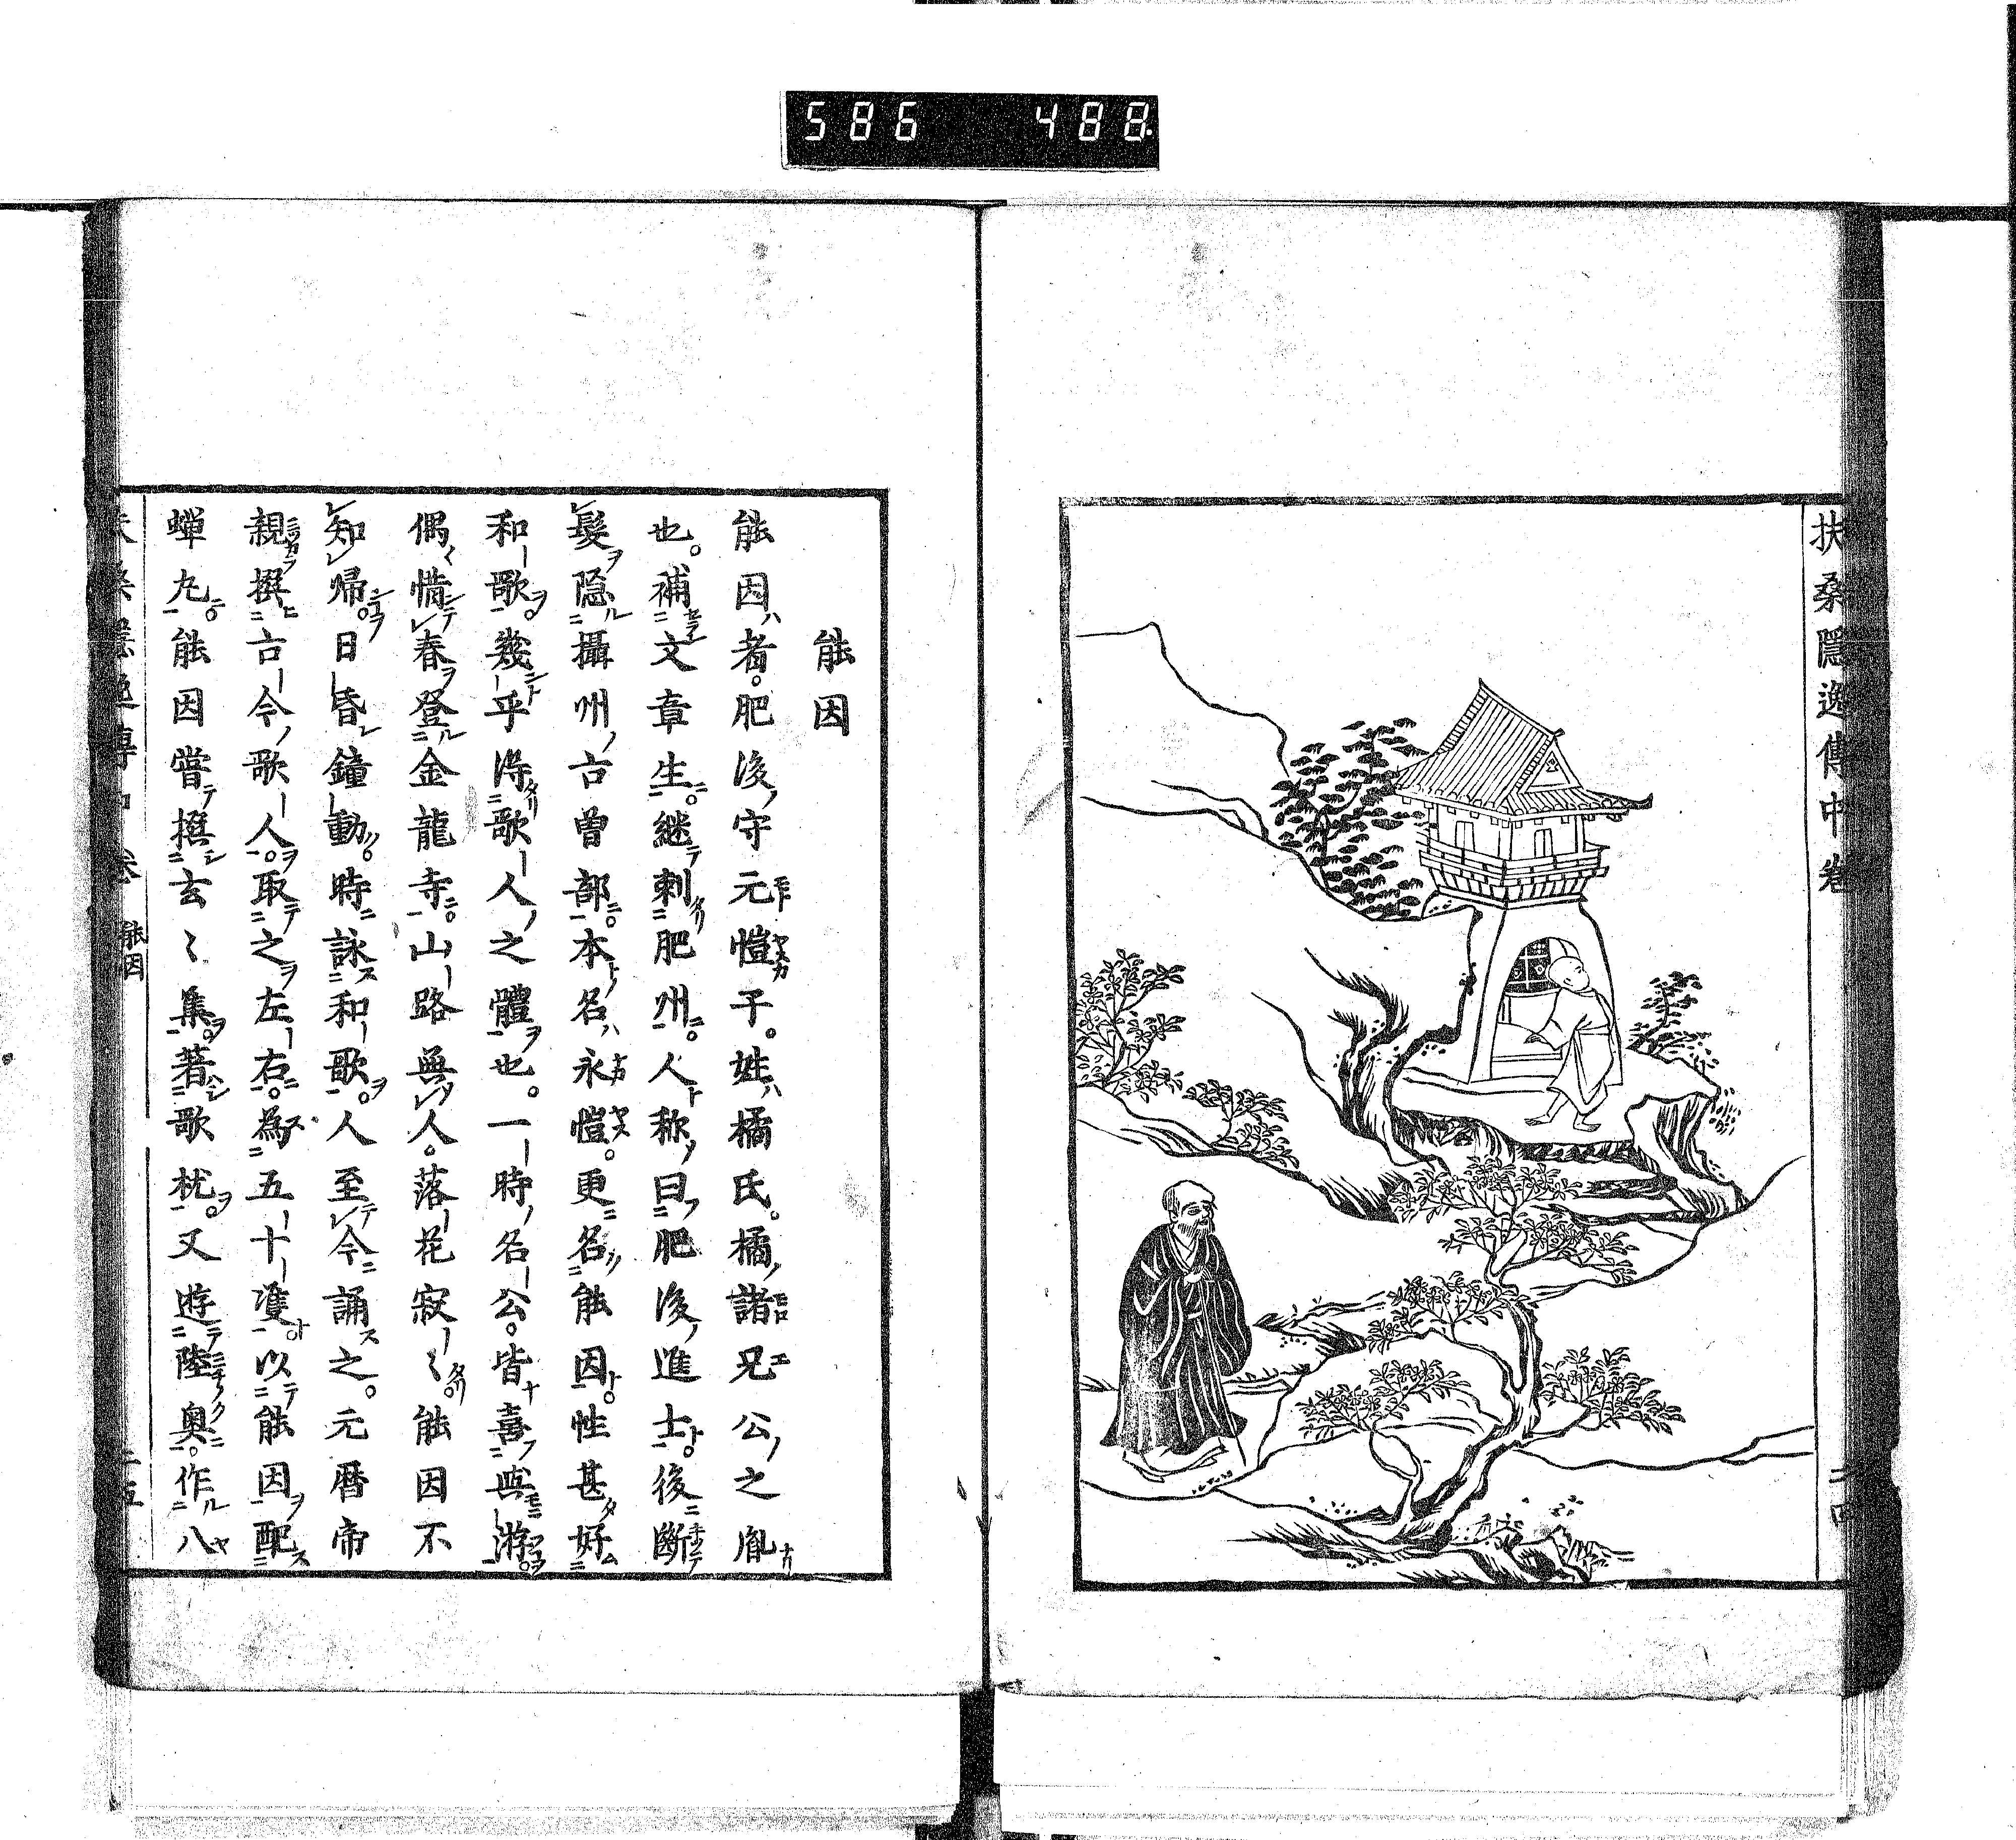 586 488
扶桑隱逸傳中卷
二四
能因
能因ハ者。肥後ノ守元愷子。姓ハ橘氏。橘ノ諸兄公ノ之胤
也。補文章生。継刺肥州。人称曰肥後ノ進士。後斷
髮隠攝州ノ古曽部。本名ハ永愷。更名能因。性甚好
和歌。幾乎得歌人ノ之體也。一時ノ名公。皆喜與游。
偶惜春登金龍寺。山路無人。落花寂〻。能因不
知歸。日昏鐘動。時詠和歌。人至今誦之。元暦帝
親撰古今ノ歌人。取之左右。為五十雙。以能因配
蟬丸。能因嘗撰玄〻集。著歌枕。又遊陸奥。作八
扶桑隱逸傳中卷 能因 二五